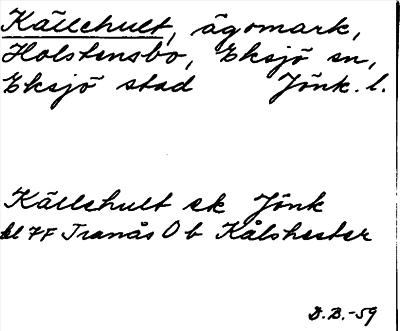 Källehult, ägomark,
Holstensbo, Eksjö sn,
Eksjö stad Jönk. l.
Källehult ek Jönk
bl 7F Tranås O b Kålshester
B.B.-59